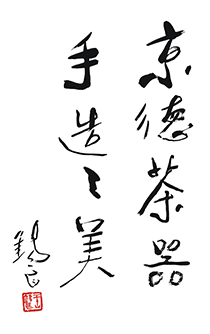 京德茶器
手造之美
錫良